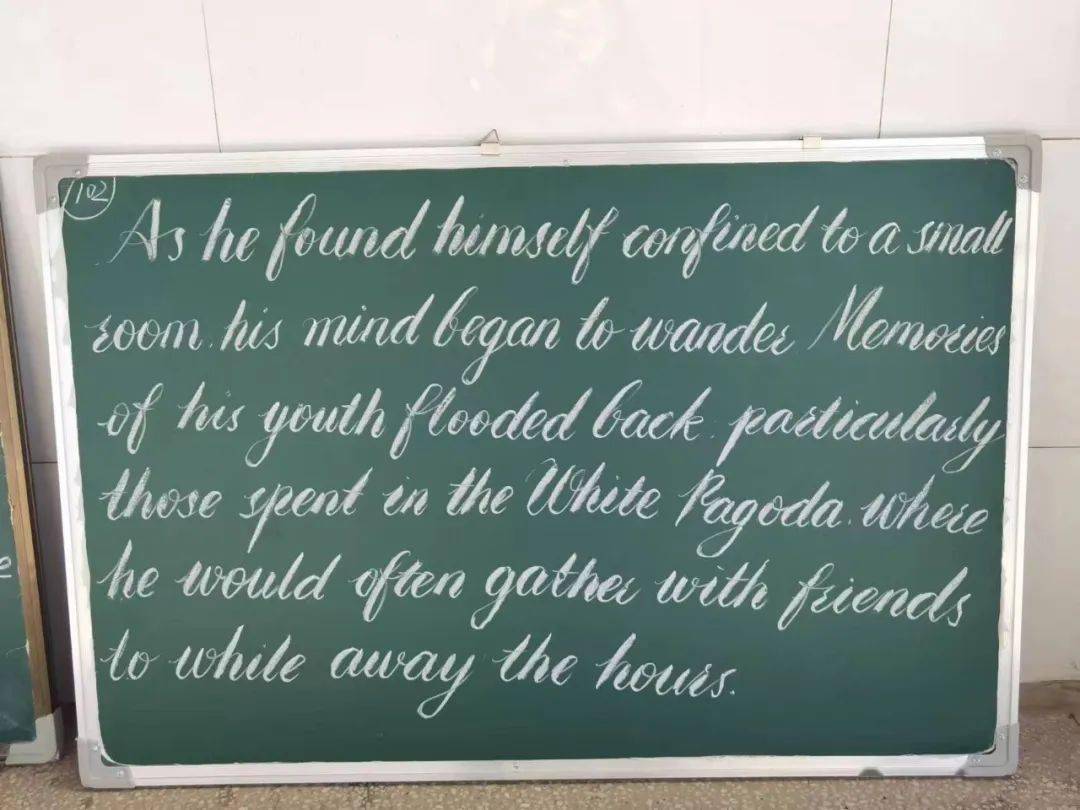 102
As he found himself confined to a small
room, his mind began to wander. Memories
of his youth flooded back, particularly
those spent in the White Pagoda, where
he would often gather with friends
to while away the hours.